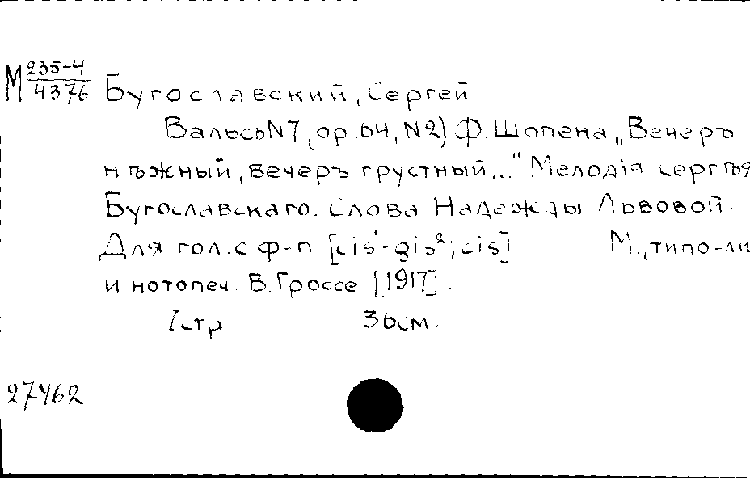 М 235-4
4376
Бугославский, Сергей
Вальсъ N7 (op.64, N2) Ф. Шопена „Вечеръ
нѣжный, вечеръ грустный..." Мелодія Сергѣя
Бугославскаго. Слова Надежды Львовой.
Для гол. с ф-п [cis¹-gis²; cis] М., типо-ли
и нотопеч. В. Гроссе [1917].
7стр 36см.
27462